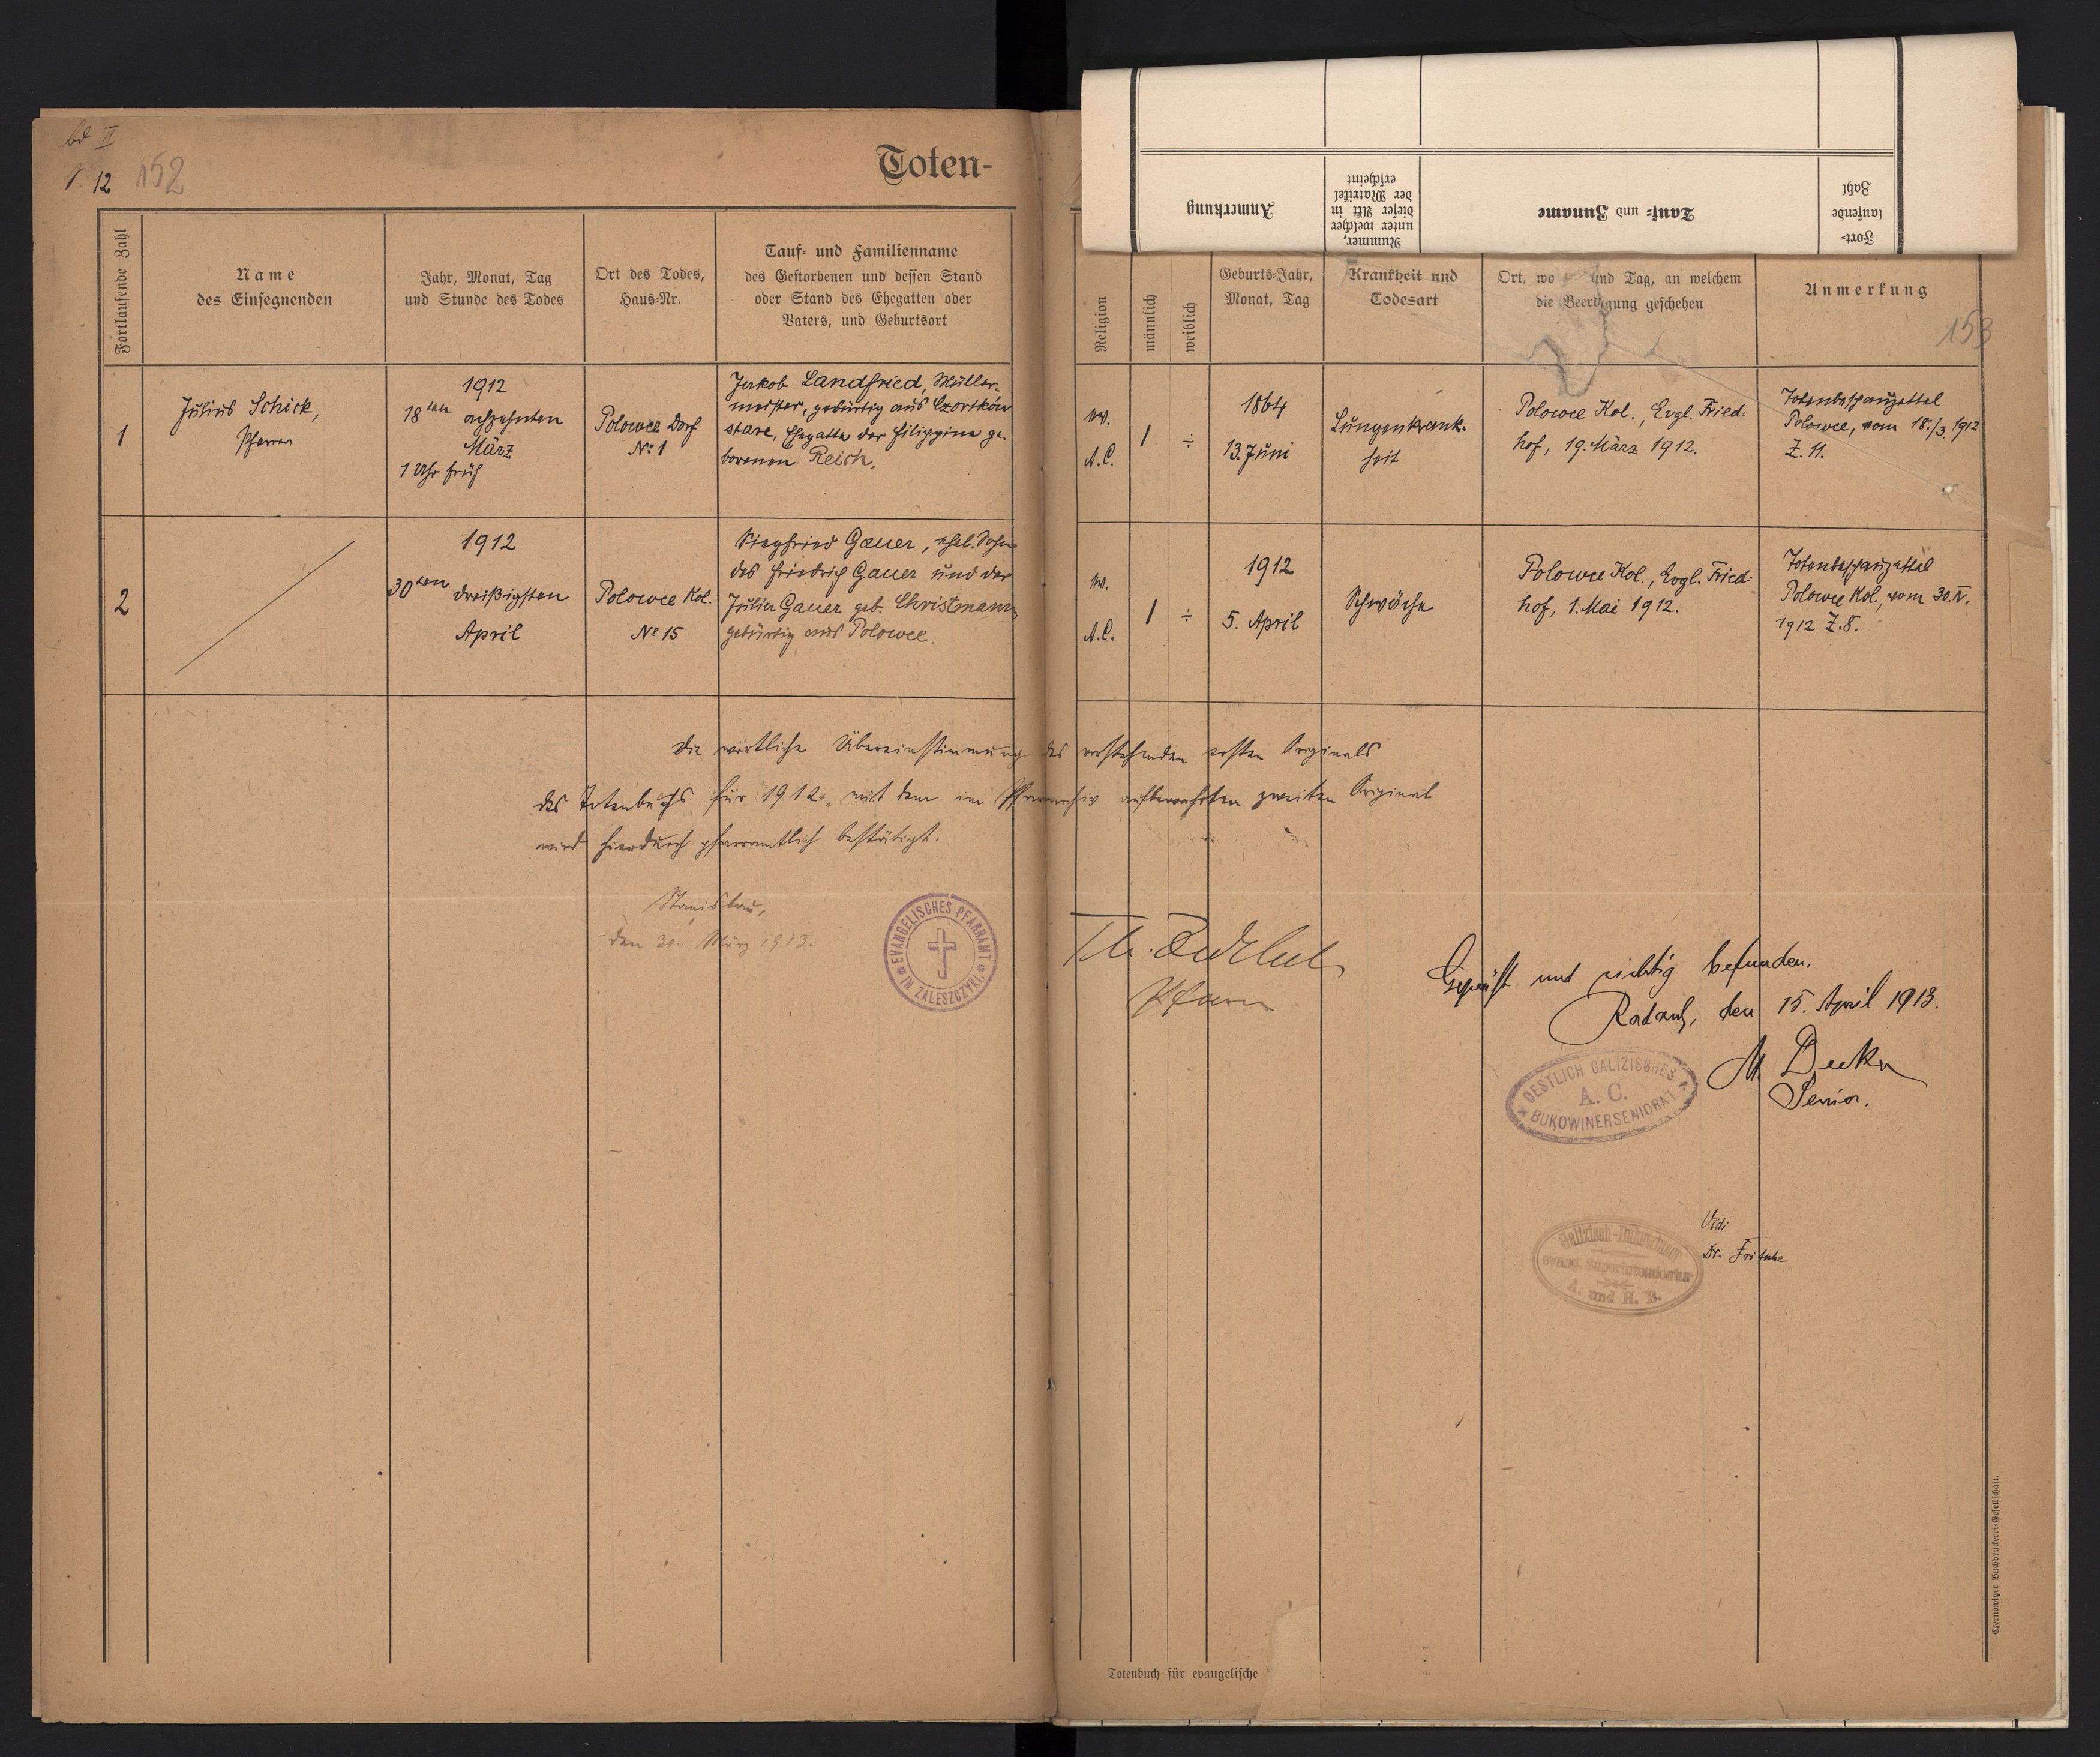 bd II
12 152
Toten-
Fortlaufende Zahl
Name
des Einsegnenden
Jahr, Monat, Tag
und Stunde des Todes
Ort des Todes,
Haus-Nr.
Tauf- und Familienname
des Gestorbenen und dessen Stand
oder Stand des Ehegatten oder
Vaters, und Geburtsort
1
Julius Schick,
Pfarrer
1912
18ten achzehnten
März
1 Uhr früh
Polowce Dorf
No 1
Jakob Landfried, Müller-
meister, gebürtig aus Czortków
stare, Ehegatte der Filippine ge-
borenen Reich.
2
1912
30ten dreißigsten
April
Polowce Kol.
No 15
Siegfried Gauer, ehel. Sohn
des Friedrich Gauer und der
Julia Gauer geb. Christmann,
gebürtig aus Polowce.
Anmerkung
Nummer,
unter welcher
dieser Akt in
der Matrikel
erscheint
Tauf- und Zuname
Fort-
laufende
Zahl
Religion
männlich
weiblich
Geburts-Jahr,
Monat, Tag
Krankheit und
Todesart
Ort, wo und Tag, an welchem
die Beerdigung geschehen
Anmerkung
153
ev.
A.C.
1
÷
1864
13. Juni
Lungenkrank-
heit
Polowce Kol., Evgl. Fried-
hof, 19. März 1912.
Totenbeschauzettel
Polowce, vom 18./3. 1912
Z. 11.
ev.
A.C.
1
÷
1912
5. April
Schwäche
Polowce Kol., Evgl. Fried-
hof, 1. Mai 1912.
Totenbeschauzettel
Polowce Kol., vom 30. IV.
1912 Z. 8.
Die wörtliche Übereinstimmung des vorstehenden ersten Originals
des Totenbuchs für 1912 mit dem im Pfarrarchiv aufbewahrten zweiten Original
wird hierdurch pfarramtlich bestätigt.
Stanislau,
den 30. März 1913.
EVANGELISCHES PFARRAMT
IN ZALESZCZYKI.
Th.
Pfarrer
Geprüft und richtig befunden.
Radautz, den 15. April 1913.
M Decker
Senior.
OESTLICH GALIZISCHES &
A. C.
BUKOWINERSENIORAT
Vidi
Dr. Fritsche
Galizisch-Bukowiner
evang. Superintendentur
A. und H. B.
Totenbuch für evangelische
Czernowitzer Buchdruckerei-Gesellschaft.